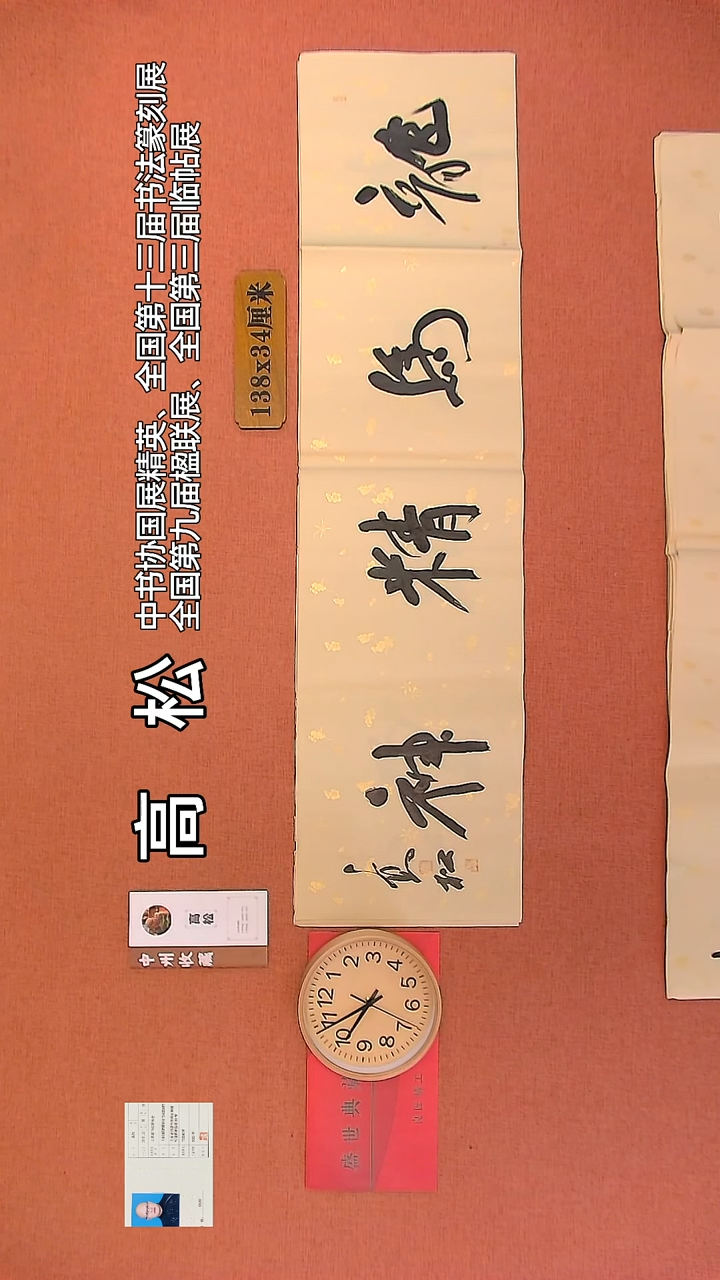 高 松
中书协国展精英、全国第十三届书法篆刻展
全国第九届楹联展、全国第三届临帖展
138x34厘米
龍馬精神
高松
高松
中州收藏
12 1 2 3 4 5 6 7 8 9 10 11
盛世典